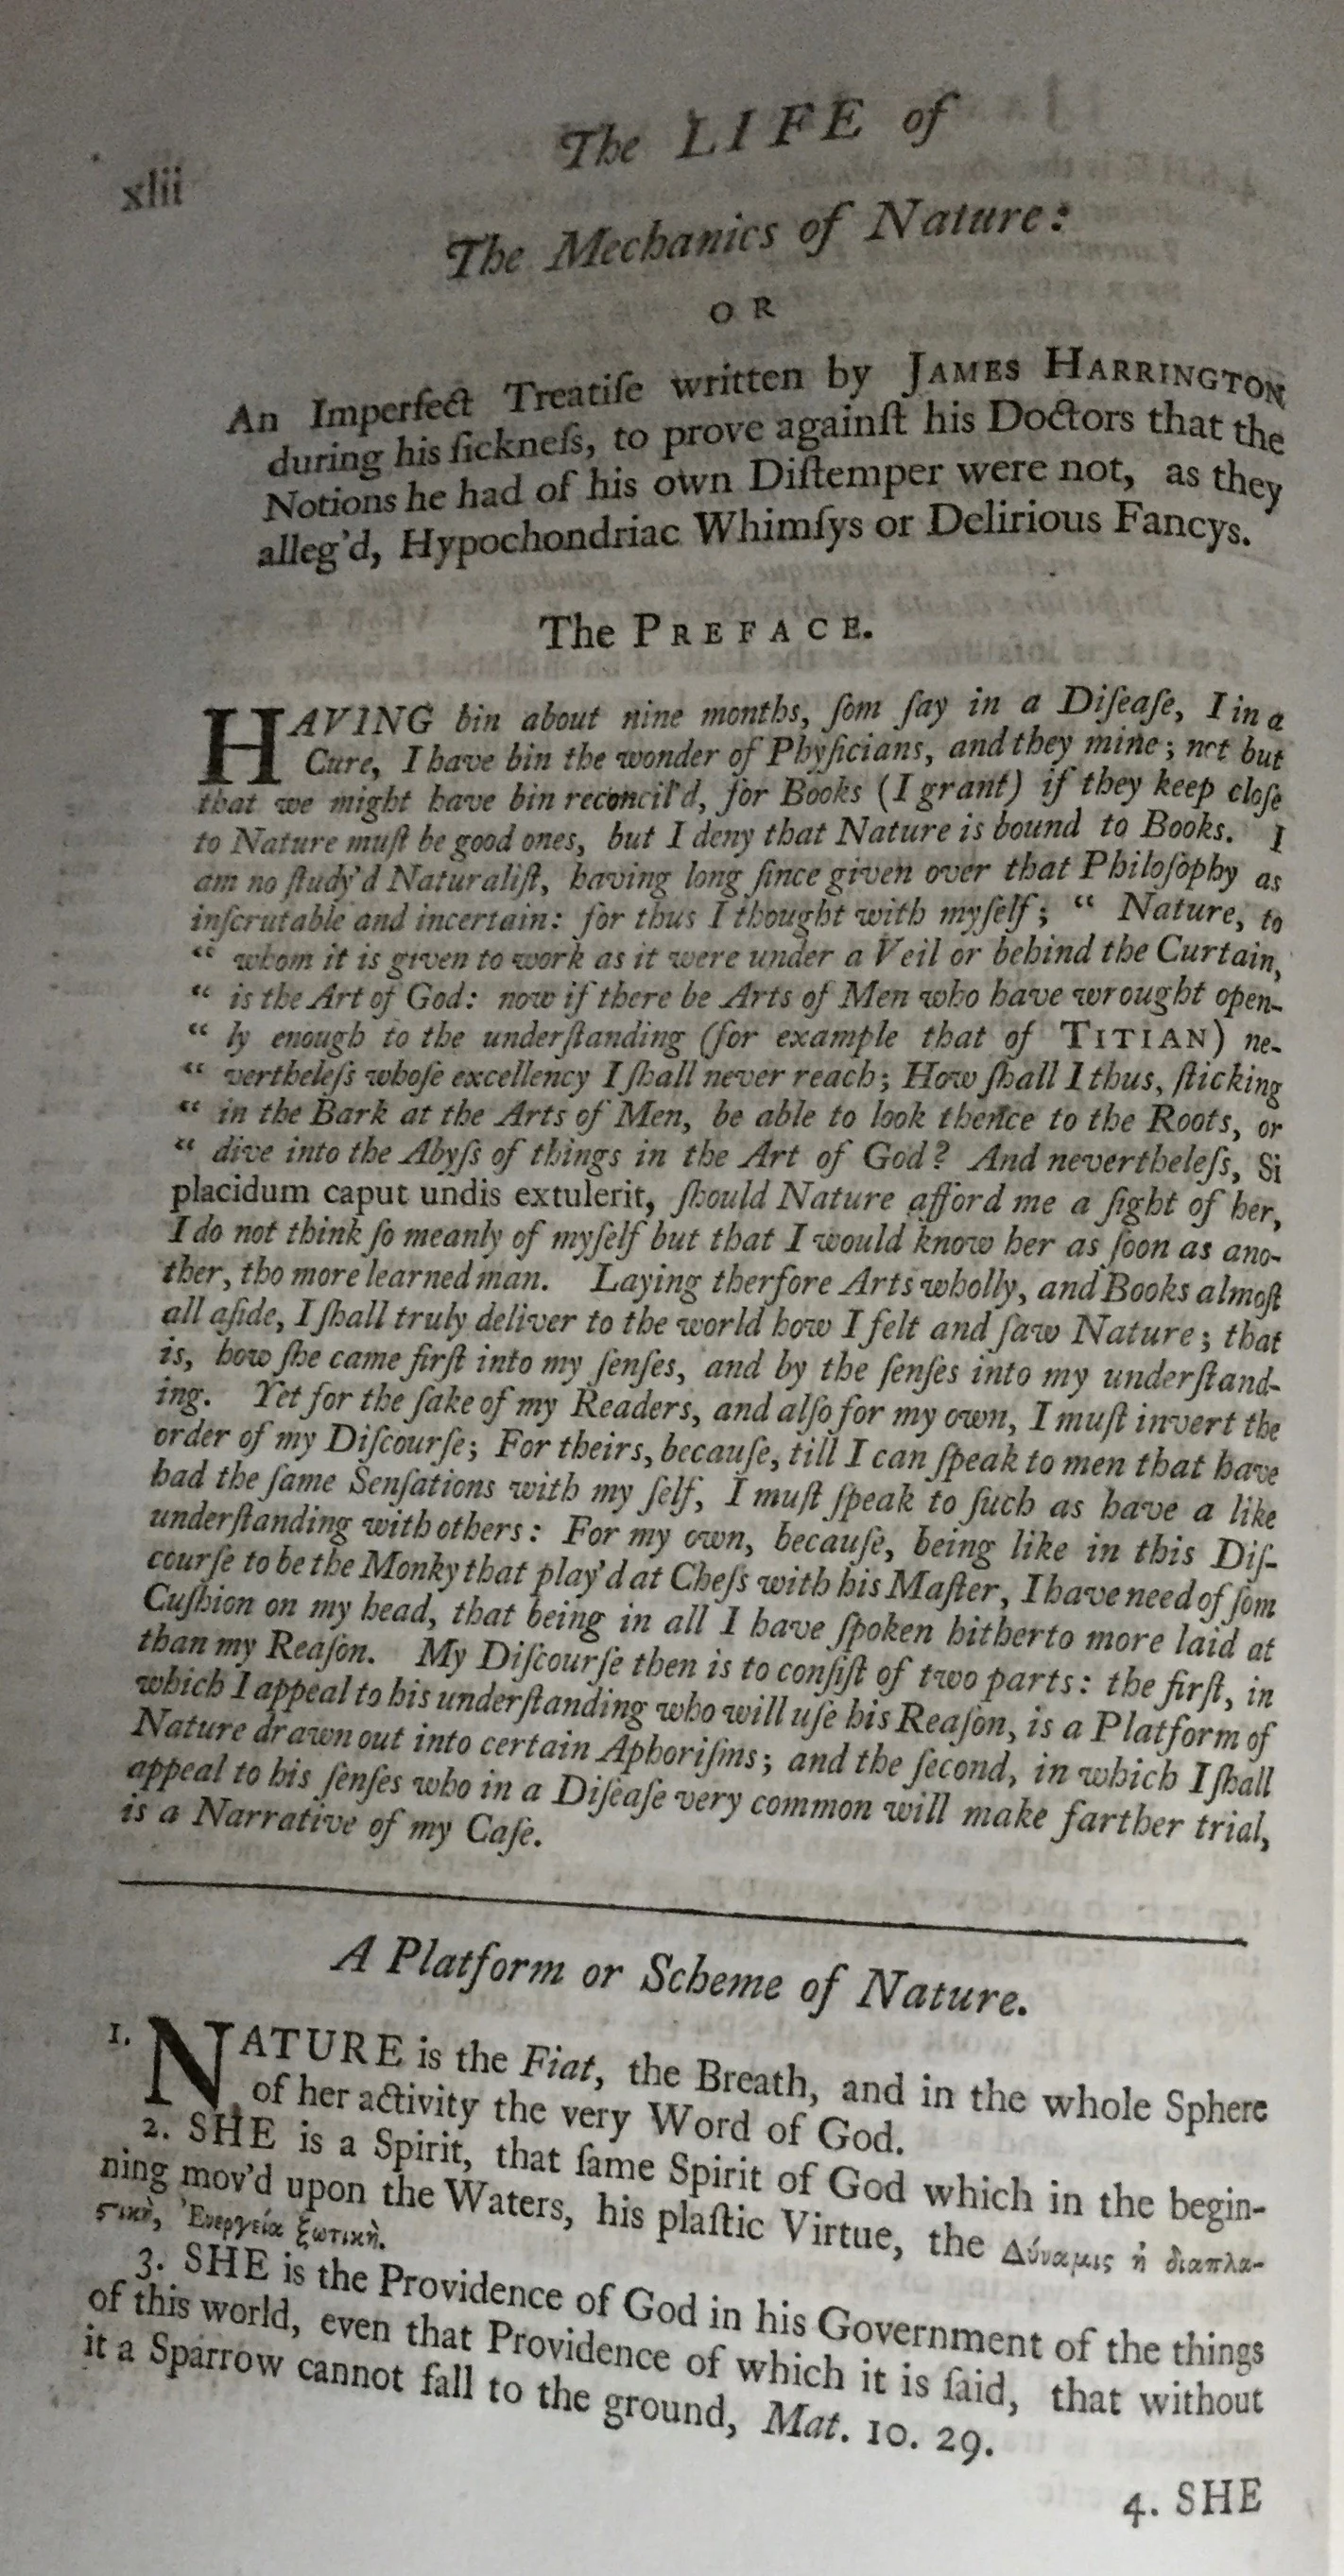 The LIFE of
xlii
The Mechanics of Nature:
OR
An Imperfect Treatiſe written by JAMES HARRINGTON
during his ſickneſs, to prove againſt his Doctors that the
Notions he had of his own Diſtemper were not, as they
alleg'd, Hypochondriac Whimſys or Delirious Fancys.
The PREFACE.
HAVING bin about nine months, ſom ſay in a Diſeaſe, I in a
Cure, I have bin the wonder of Phyſicians, and they mine; not but
that we might have bin reconcil'd, for Books (I grant) if they keep cloſe
to Nature muſt be good ones, but I deny that Nature is bound to Books. I
am no ſtudy'd Naturaliſt, having long ſince given over that Philoſophy as
inſcrutable and incertain: for thus I thought with myſelf; “ Nature, to
“ whom it is given to work as it were under a Veil or behind the Curtain,
“ is the Art of God: now if there be Arts of Men who have wrought open-
“ ly enough to the underſtanding (for example that of TITIAN) ne-
“ vertheleſs whoſe excellency I ſhall never reach; How ſhall I thus, ſticking
“ in the Bark at the Arts of Men, be able to look thence to the Roots, or
“ dive into the Abyſs of things in the Art of God? And nevertheleſs, Si
placidum caput undis extulerit, ſhould Nature afford me a ſight of her,
I do not think ſo meanly of myſelf but that I would know her as ſoon as ano-
ther, tho more learned man. Laying therfore Arts wholly, and Books almoſt
all aſide, I ſhall truly deliver to the world how I felt and ſaw Nature; that
is, how ſhe came firſt into my ſenſes, and by the ſenſes into my underſtand-
ing. Yet for the ſake of my Readers, and alſo for my own, I muſt invert the
order of my Diſcourſe; For theirs, becauſe, till I can ſpeak to men that have
had the ſame Senſations with my ſelf, I muſt ſpeak to ſuch as have a like
underſtanding with others: For my own, becauſe, being like in this Diſ-
courſe to be the Monky that play'd at Cheſs with his Maſter, I have need of ſom
Cuſhion on my head, that being in all I have ſpoken hitherto more laid at
than my Reaſon. My Diſcourſe then is to conſiſt of two parts: the firſt, in
which I appeal to his underſtanding who will uſe his Reaſon, is a Platform of
Nature drawn out into certain Aphoriſms; and the ſecond, in which I ſhall
appeal to his ſenſes who in a Diſeaſe very common will make farther trial,
is a Narrative of my Caſe.
A Platform or Scheme of Nature.
1. NATURE is the Fiat, the Breath, and in the whole Sphere
of her activity the very Word of God.
2. SHE is a Spirit, that ſame Spirit of God which in the begin-
ning mov'd upon the Waters, his plaſtic Virtue, the Δύναμις ἡ διαπλα-
ϛικὴ, Ἐνεργεία ξωτικὴ.
3. SHE is the Providence of God in his Government of the things
of this world, even that Providence of which it is ſaid, that without
it a Sparrow cannot fall to the ground, Mat. 10. 29.
4. SHE